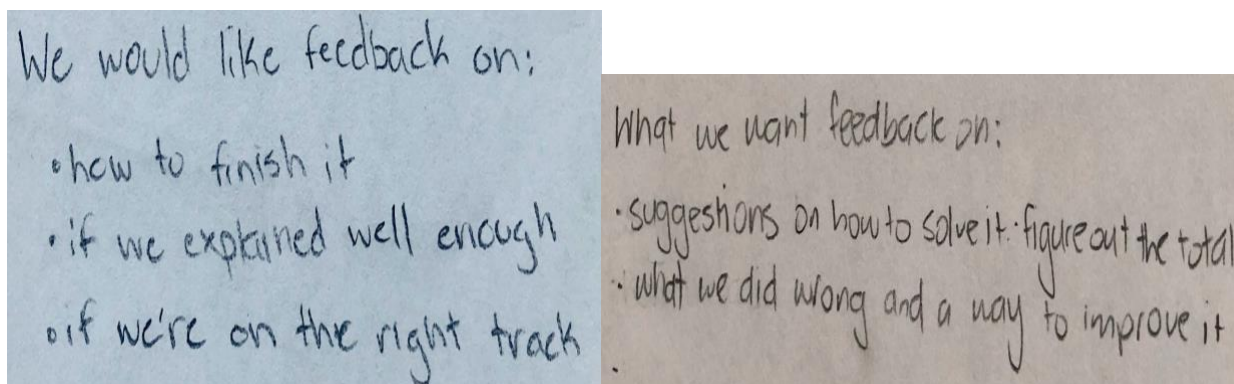 We would like feedback on:
• how to finish it
• if we explained well enough
• if we're on the right track
What we want feedback on:
• suggestions on how to solve it. • figure out the total
• what we did wrong and a way to improve it
•